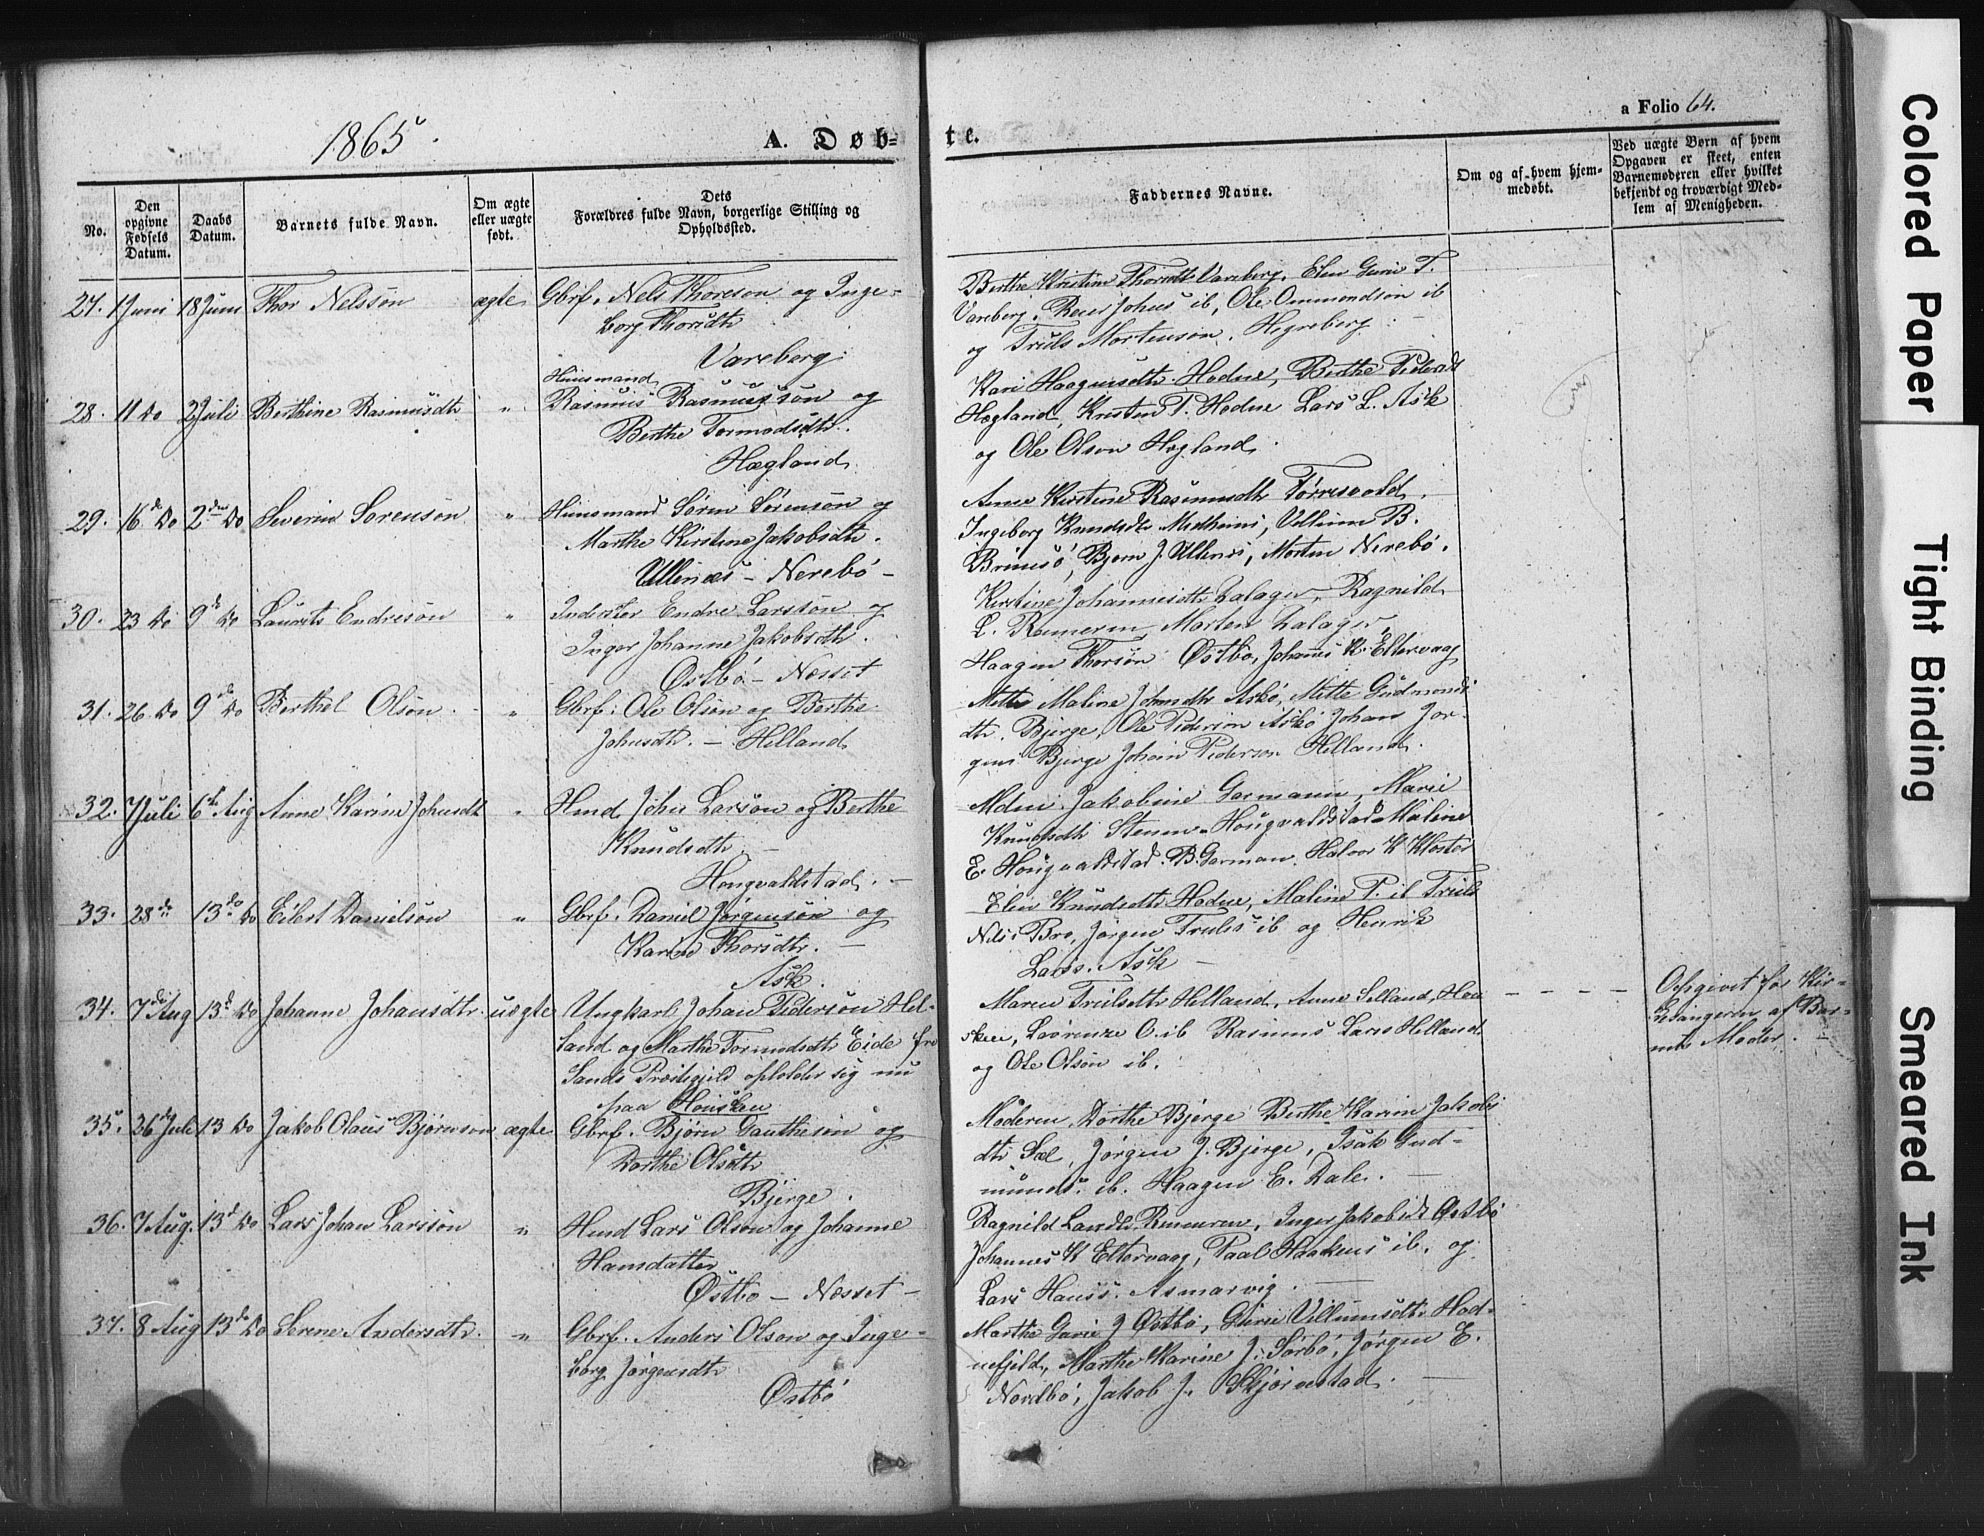 1865.
A. Døb-
te.
a Folio 64.
No.
Den opgivne Fødsels Datum.
Daabs Datum.
Barnets fulde Navn.
Om ægte eller uægte født.
Dets Forældres fulde Navn, borgerlige Stilling og Opholdssted.
Faddernes Navne.
Om og af hvem hjemmedøbt.
Ved uægte Børn af hvem
Opgaven er skeet, enten
Barnemoderen eller hvilket
bekjendt og troværdigt Med-
lem af Menigheden.
27. 1 Juni 18 Juni Thor Nelsson ægte Gbrf. Nels Thoreson og Inge-
borg Thorsdtr
Vareberg.
Berthe Kristine Thorsdtr Vareberg, Elen Gurie T.
Vareberg, Reier Johns ib, Ole Ommundson ib
og Truls Mortenson, Hegreberg
28. 11 Do 2 Juli Berthine Rasmusdtr "
Huusmand
Rasmus Rasmusson og
Berthe Tormodsdtr.
Hægland.
Kari Haagensdtr Hodne, Berthe Pedersdt
Hægland, Kristen P. Hodne Lars L. Ask
og Ole Olson Hægland.
29. 16de Do 2den Do Severin Sorenson "
Huusmand Sørin Sørenson og
Marthe Kirstine Jakobsdtr.
Ullenæs - Nerebö -
Anne Kirstine Rasmusdtr Torrisvold
Ingeborg Knudsdtr Midheim, Villum B.
Brimsö, Bjørn J. Ullenes, Morten Nerebö.
30. 23 Do 9de Do Laurits Endreson "
Inderster Endre Larsson og
Inger Johanne Jakobsdtr.
Østbö - Næsset
Kirstine Johannesdtr Zalager, Ragnild
L. Rameren, Morten Zalager,
Haagen Thorson Østbo, Johannes K. Eltervaag
31. 26 Do 9de Do Berthel Olson. "
Gbrf: Ole Olson og Berthe
Johnsdtr. - Helland
Mette Maline Johnsdtr Askö, Mette Gudmunds
dtr. Bjerge, Ole Pederson Askö Johan Jor-
gens Bjerge Johan Pederson Helland.
32. 7 Juli 6te Aug Anne Karine Johnsdtr "
Hmd John Larson og Berthe
Knudsdtr. -
Hougvaldstad. -
Mdm. Jakobine Garmann, Marie
Knudsdtr Stenen, Hougvaldstad Maline
E. Hougvaldstad. B. Garman. Halvor K Kloster
33. 28de 13de Do Eilert Danielson "
Gbrf. Daniel Jørgenson og
Karen Thorsdtr. -
Ask.
Elen Knudsdtr Hodne, Maline P. ib Truls
Nels: Bro, Jörgen Truls ib og Henrik
Lars: Ask -
34. 7de Aug 13de Do Johanne Johansdtr. uægte
Ungkarl Johan Pederson Hel-
land og Marthe Tormodsdtr Eide fra
Sands Præstegjeld opholder sig nu
paa Houskeu
Maren Trulsdtr Helland, Anne Selland, Hou
skeu, Lorenze O. ib Rasmus Lars Helland
og Ole Olson ib.
Opgivet for Kir-
kesangeren af Bar-
nets Moder.
35. 26de Juli 13 Do Jakob Olaus Bjørnson ægte
Gbrf. Bjørn Gautheson og
Dorthe Olsdtr
Bjerge.
Moderen Dorthe Bjerge Berthe Karin Jakobs
dtr Sæl, Jørgen J. Bjerge, Isak Gud-
munds: ib. Haagen E. Dale. -
36. 7 Aug. 13de Do Lars Johan Larsson "
Hmd Lars Olson og Johanne
Hansdatter
Østbo - Næsset -
Ragnild Larsdtr Rameren, Inger Jakobsdt Østbö
Johannes K Eltervaag, Paal Haakens ib. og
Lars Hanss. Asmarvig.
37. 8 Aug 13de Do Serene Andersdtr. "
Gbrf. Anders Olson og Inge-
borg Jørgensdtr
Østbö
Marthe Gurie J Østbö, Gurie Villumsdtr Hod-
nefjeld, Marthe Karine J. Sørbö, Jørgen E.
Nordbö, Jakob J. Skjørestad.
Colored Paper
Tight Binding
Smeared Ink